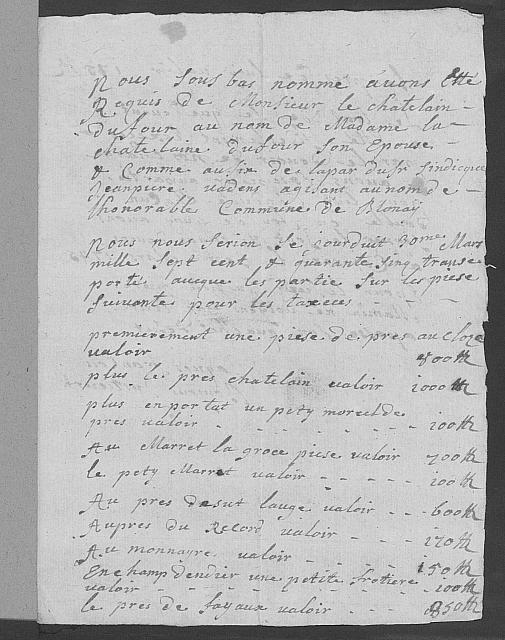 Nous sous bas nomme avons Etté
Requis de Monsieur le chatelain
dufour au nom de Madame la
chatelaine dufour son Epouse
& Comme aussin de la par du Sr sindicque
Jeanpiere vadens agisant au nom de
lhonorable Commune de Blonay
Nous nous serion se jourduit 30me Mars
mille sept cent & quarante sinq transe
porté auvque les partie sur les piese
suivante pour les taxees
premierement une piese de pres au Cloze
valoir 800 ℔
plus le pres chatelain valoir 1000 ℔
plus en portat un pety morcel de
pres valoir 100 ℔
Au Marret la groce piese valoir 700 ℔
le pety Marret valoir 100 ℔
Au pres desut lauge valoir 600 ℔
Aupres du Record valoir 170 ℔
Au monnayre valoir 150 ℔
En champ dendier une petite frotiere
valoir 100 ℔
le pres de fayaux valoir 850 ℔